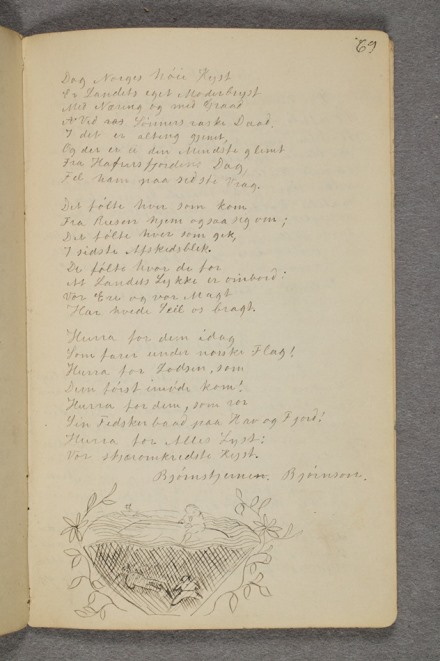 69
Dog Norges höie Kyst
Er Landets eget Moderbryst
Med Næring og med Graad
Ved vore Sönners raske Daad.
I det er alting gjemt,
Og der er ei den Mindste glemt
Fra Hafursfjordens Dag,
Til ham paa sidste Vrag.
Det fölte hver som kom
Fra Reisen hjem og saa sig om;
Det fölte hver som gik,
I sidste Afskedsblik.
De fölte hvor de for
At Landets Lykke er ombord:
Vor Ere og vor Magt
Har hvide Seil os bragt.
Hurra for dem idag
Som farer under norske Flag!
Hurra for Lodsen, som
Dem först imöde kom!
Hurra for dem, som ror
Sin Fiskerbaad paa Hav og Fjord!
Hurra for Alles Lyst:
Vor skjæromkredste Kyst.
Björnstjerne Björnson.